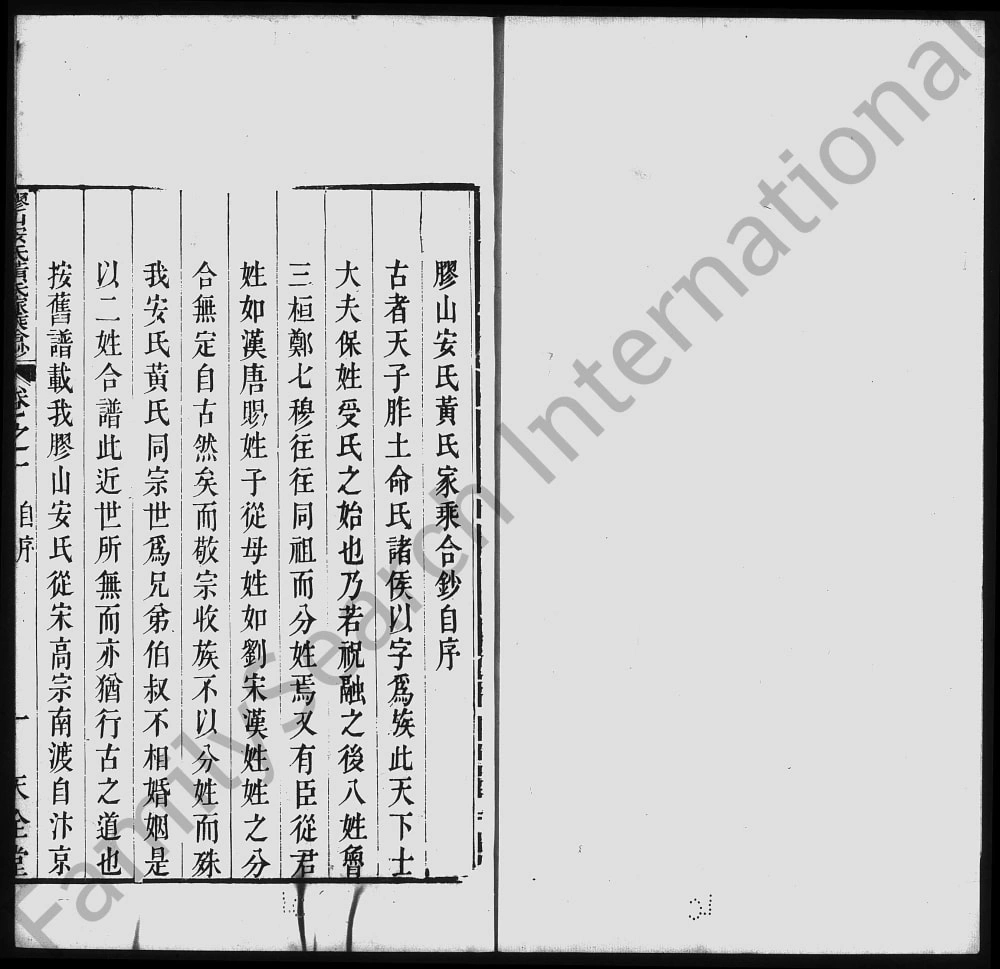 膠山安氏黃氏家乘合鈔自序
古者天子胙土命氏諸侯以字爲族此天下士
大夫保姓受氏之始也乃若祝融之後八姓魯
三桓鄭七穆往往同祖而分姓焉又有臣從君
姓如漢唐賜姓子從母姓如劉宋漢姓姓之分
合無定自古然矣而敬宗收族不以分姓而殊
我安氏黃氏同宗世爲兄弟伯叔不相婚姻是
以二姓合譜此近世所無而亦猶行古之道也
按舊譜載我膠山安氏從宋高宗南渡自汴京
膠山安氏黃氏家乘合鈔 卷之一 自序 一 天全堂
FamilySearch International